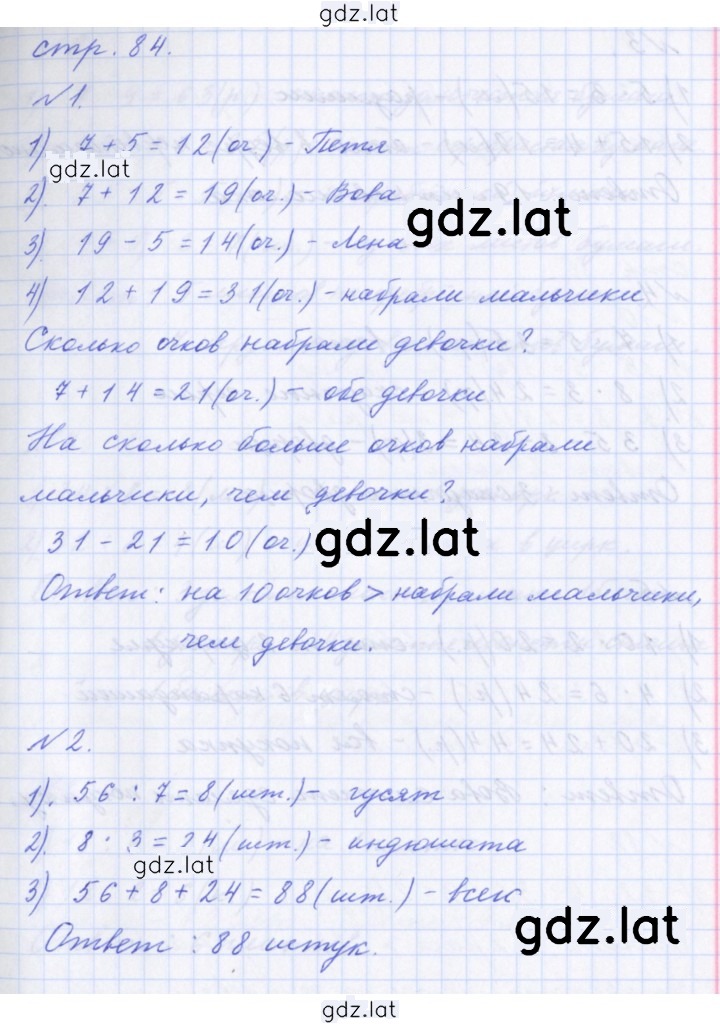 gdz.lat
стр. 84.
№1.
1) 7 + 5 = 12 (оч.) - Петя
gdz.lat
2) 7 + 12 = 19 (оч.) - Вова
gdz.lat
3) 19 - 5 = 14 (оч.) - Лена
4) 12 + 19 = 31 (оч.) - набрали мальчики
Сколько очков набрали девочки?
7 + 14 = 21 (оч.) - обе девочки
На сколько больше очков набрали
мальчики, чем девочки?
31 - 21 = 10 (оч.)
gdz.lat
Ответ: на 10 очков > набрали мальчики,
чем девочки.
№2.
1). 56 : 7 = 8 (шт.) - гусят
2) 8 · 3 = 24 (шт.) - индюшата
gdz.lat
3) 56 + 8 + 24 = 88 (шт.) - всех
gdz.lat
Ответ : 88 штук.
gdz.lat